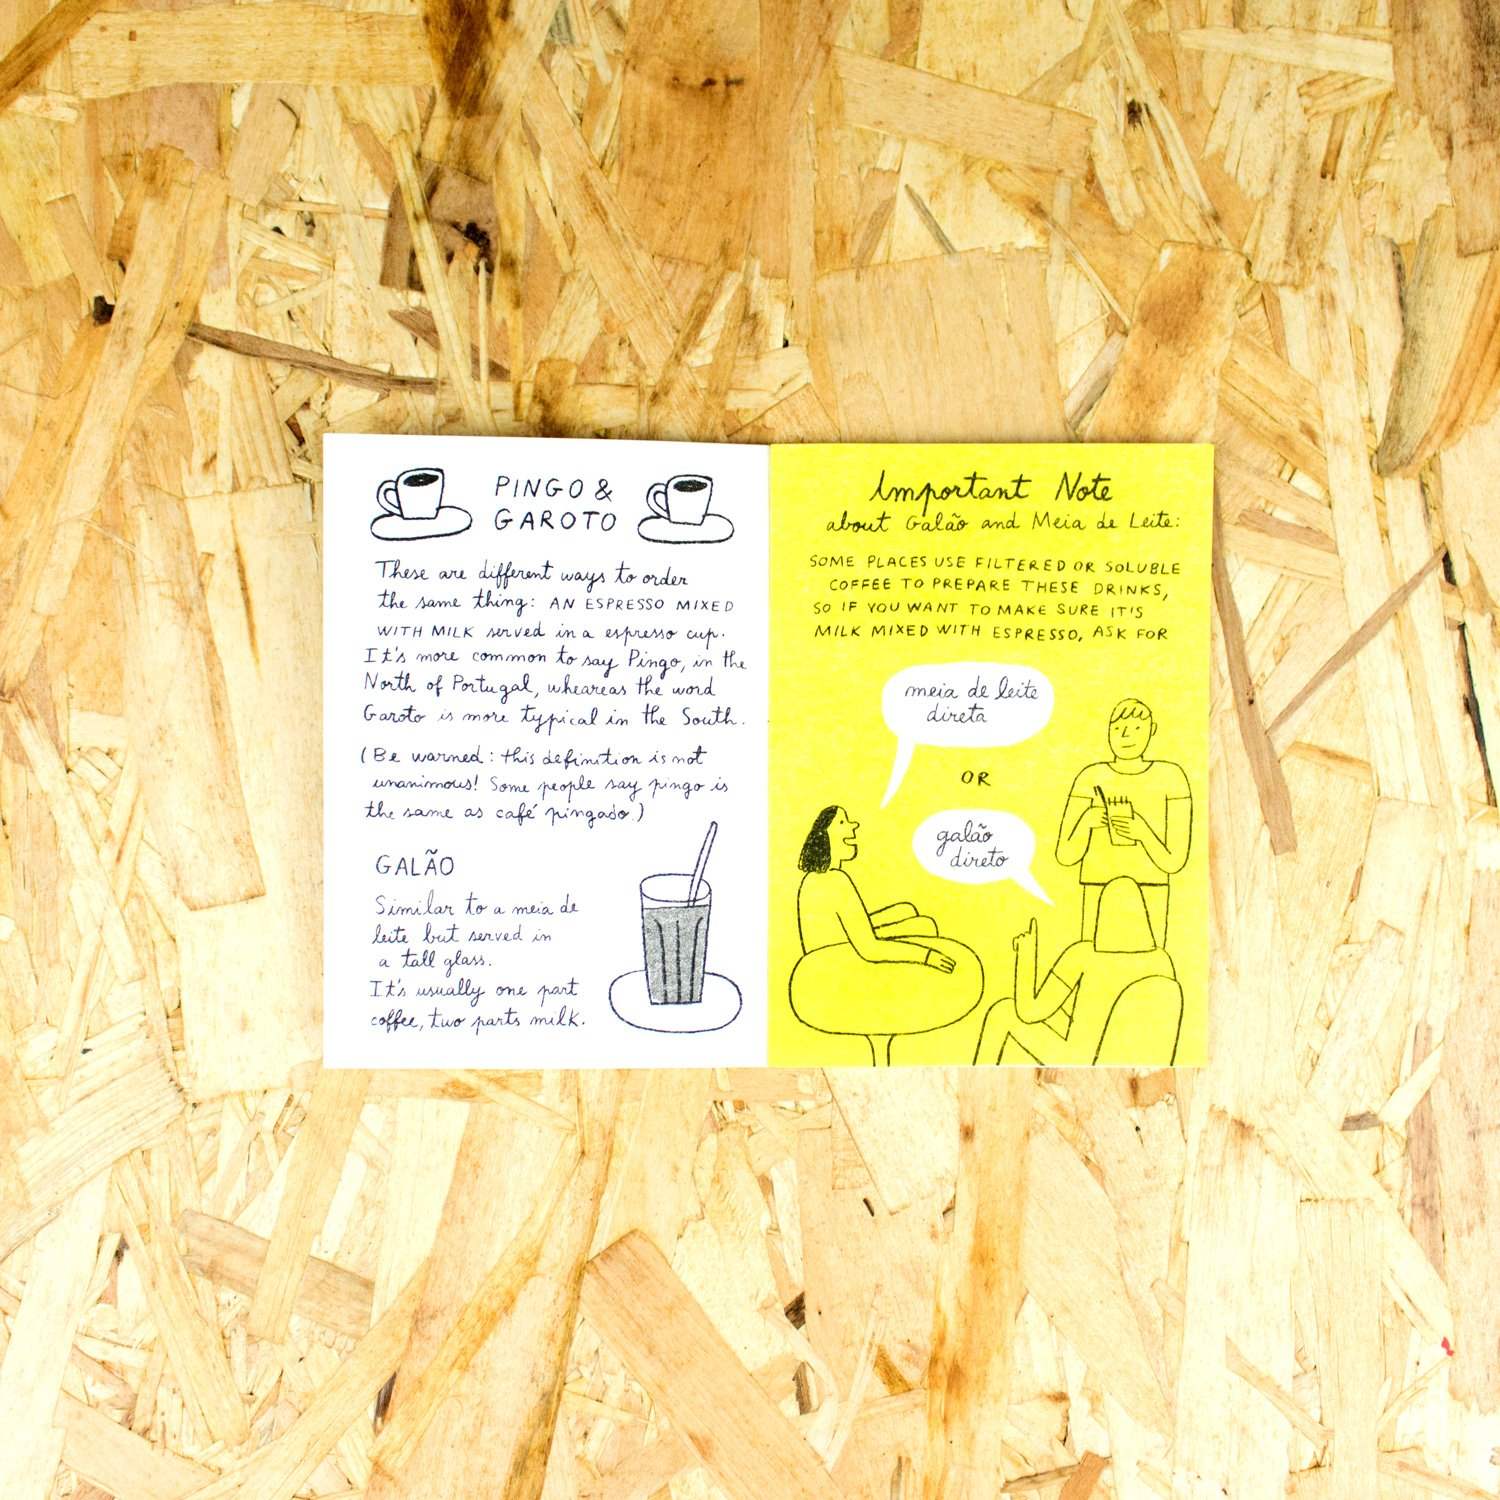 PINGO &
GAROTO
These are different ways to order
the same thing: AN ESPRESSO MIXED
WITH MILK served in a espresso cup.
It's more common to say Pingo, in the
North of Portugal, wheareas the word
Garoto is more typical in the South.
(Be warned: this definition is not
unanimous! Some people say pingo is
the same as café pingado.)
GALÃO
Similar to a meia de
leite but served in
a tall glass.
It's usually one part
coffee, two parts milk.
Important Note
about Galão and Meia de Leite:
SOME PLACES USE FILTERED OR SOLUBLE
COFFEE TO PREPARE THESE DRINKS,
SO IF YOU WANT TO MAKE SURE IT'S
MILK MIXED WITH ESPRESSO, ASK FOR
meia de leite
direta
OR
galão
direto